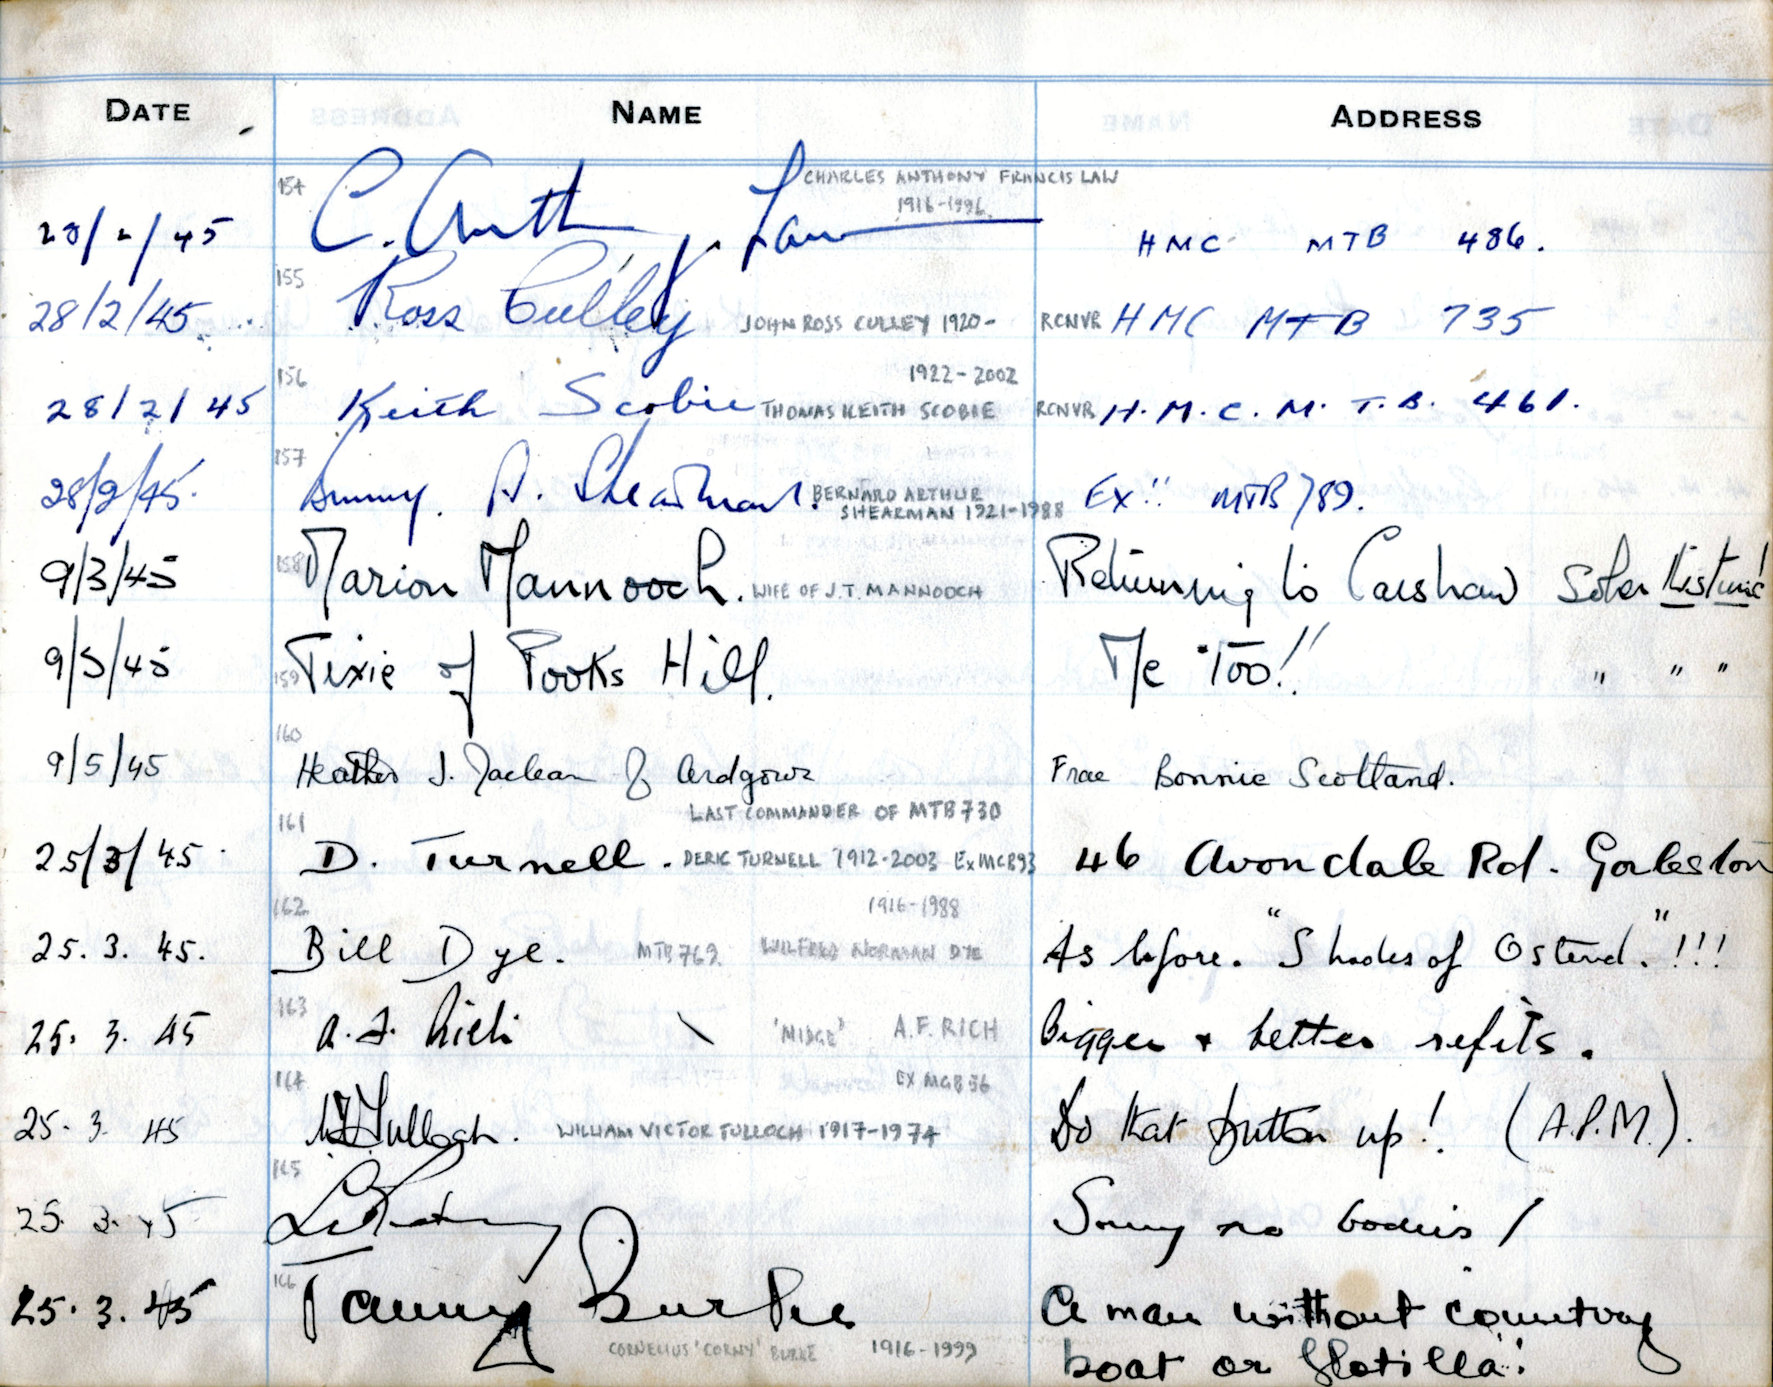 DATE NAME ADDRESS
154 CHARLES ANTHONY FRANCIS LAW
1916-1996
28/2/45 C. Anthony Law HMC MTB 486.
155
28/2/45 Ross Culley JOHN ROSS CULLEY 1920- RCNVR HMC MTB 735
156 1922-2002
28/2/45 Keith Scobie THOMAS KEITH SCOBIE RCNVR H.M.C.M.T.B. 461.
157
28/2/45. Bunny. A. Shearman. BERNARD ARTHUR Ex!! MTB 789.
SHEARMAN 1921-1988
158
9/3/45 Marion Mannooch. WIFE OF J.T. MANNOOCH Returning to
9/5/45 159 Pixie of Pooks Hill. Me Too!! " " "
160
9/5/45 Heather J. Maclean of Ardgour Frae Bonnie Scotland.
LAST COMMANDER OF MTB 730
161
25/3/45 D. Turnell. DERIC TURNELL 1912-2003 Ex MGB 93 46 Avondale Rd. Gorleston
162 1916-1988
25.3.45. Bill Dye. MTB 769 WILFRED NORMAN DYE As before. "Shades of Ostend."!!!
163
25.3.45 A.F. Rich 'MIDGE' A.F. RICH Bigger + better refits.
164 EX MGB 56
25.3.45 Tulloch. WILLIAM VICTOR TULLOCH 1917-1974 Do that button up! (A.P.M.).
165
25.3.45 Sorry no bodies!
166
25.3.45 Burke A man without country
CORNELIUS 'CORNY' BURKE 1916-1999 boat or flotilla!